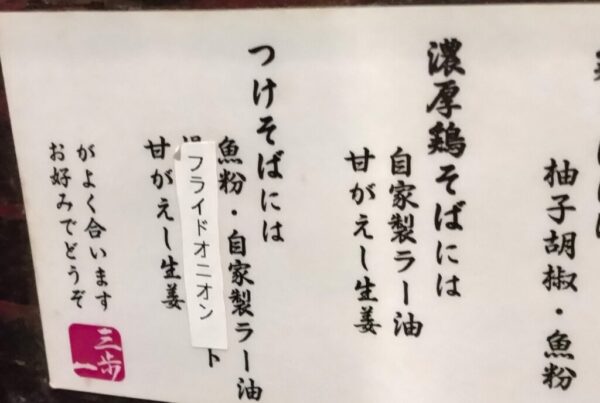 柚子胡椒・魚粉
濃厚鶏そばには
自家製ラー油
甘がえし生姜
つけそばには
魚粉・自家製ラー油
フライドオニオン
ト
甘がえし生姜
がよく合います
お好みでどうぞ
三歩一